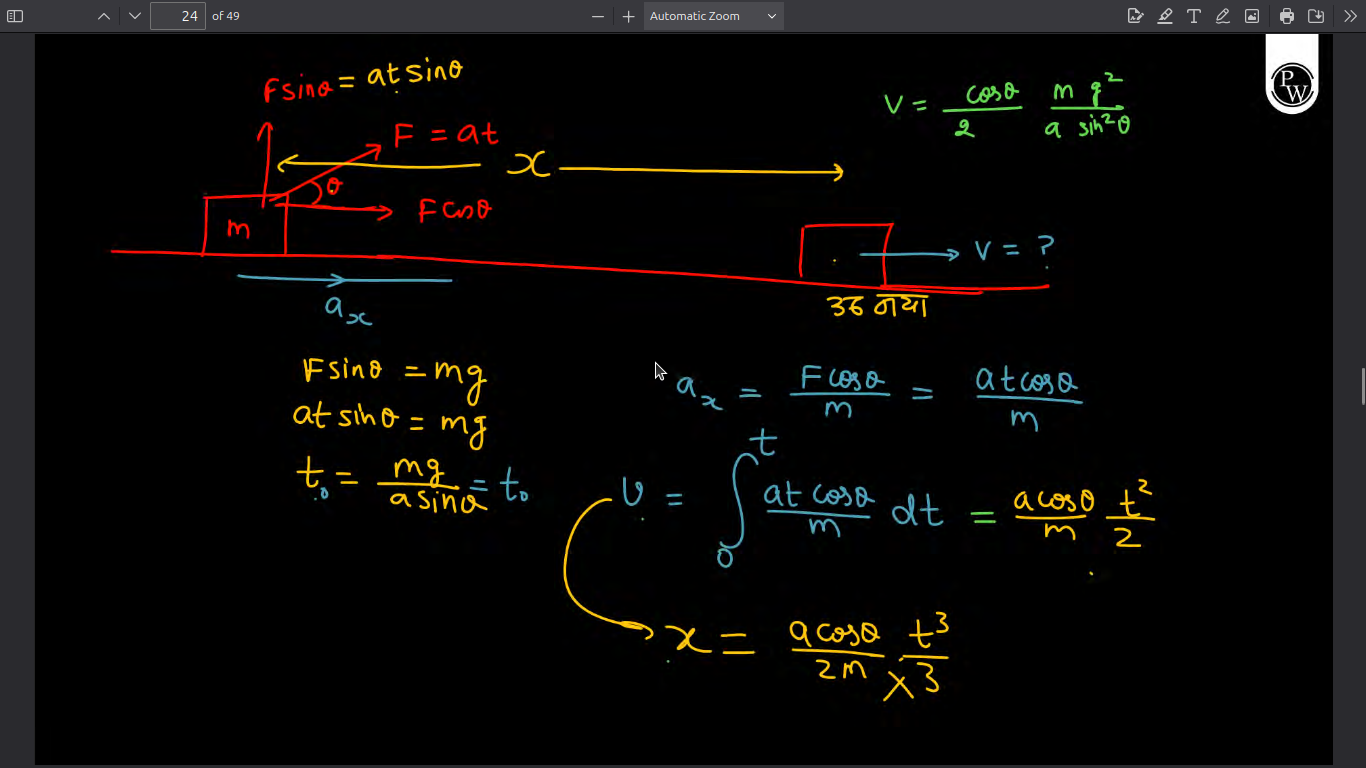 24 of 49
Automatic Zoom
PW
F sinθ = at sinθ
V = cosθ/2 m g²/a sin²θ
F = at
x
θ
F cosθ
m
V = ?
उड गया
aₓ
F sinθ = mg
at sinθ = mg
t₀ = mg/a sinθ = t₀
aₓ = F cosθ/m = at cosθ/m
v = ∫₀ᵗ at cosθ/m dt = a cosθ/m t²/2
x = a cosθ/2m × t³/3